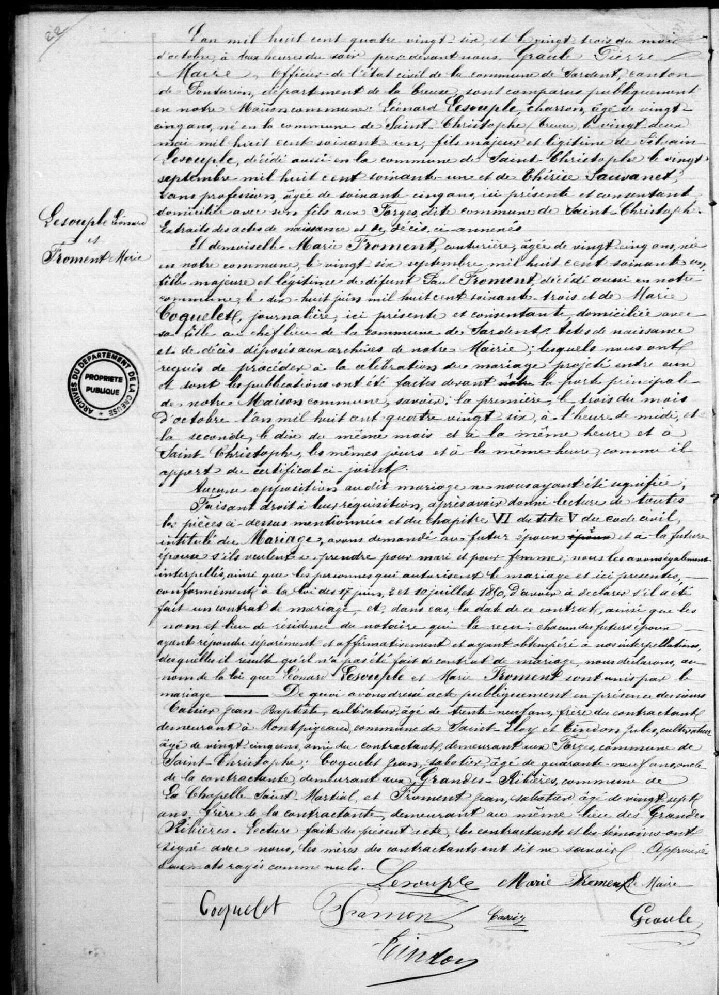 22
L'an mil huit cent quatre vingt six, et le vingt trois du mois
d'octobre, à deux heures du soir, par devant nous Graule Pierre
Maire, Officier de l'état civil de la commune de Sardent, canton
de Pontarion, département de la Creuse, sont comparus publiquement
en notre Maison commune: Léonard Lesouple, charron, âgé de vingt-
cinq ans, né en la commune de Saint-Christophe (Creuse) le vingt deux
mai mil huit cent soixante un, fils majeur et légitime de Silvain
Lesouple, décédé aussi en la commune de Saint-Christophe le vingt
septembre mil huit cent soixante une et de Thérèse Sauvanet,
sans profession, âgée de soixante cinq ans, ici présente et consentant
domiciliée avec son fils aux Forges, dite commune de Saint-Christophe.
Extraits des actes de naissance et de décès, ci-annexés
Lesouple Léonard
et
Froment Marie
Et demoiselle Marie Froment, couturière, âgée de vingt cinq ans, née
en notre commune, le vingt six septembre mil huit cent soixante un,
fille majeure et légitime de défunt Paul Froment, décédé aussi en notre
commune, le dix-huit juin mil huit cent soixante trois et de Marie
Coquelet, journalière, ici présente et consentante, domiciliée avec
sa fille au chef lieu de la commune de Sardent. Actes de naissance
et de décès déposés aux archives de notre Mairie; lesquels nous ont
requis de procéder à la célébration du mariage projeté entre eux
et dont les publications ont été faites devant notre la porte principale
de notre Maison commune, savoir: la première, le trois du mois
d'octobre l'an mil huit cent quatre vingt six, à l'heure de midi, et
la seconde, le dix de même mois et à la même heure et à
Saint Christophe, les mêmes jours et à la même heure, comme il
appert du certificat ci-joint.
ARCHIVES DU DÉPARTEMENT DE LA CREUSE
PROPRIÉTÉ
PUBLIQUE
Aucune opposition au dit mariage ne nous ayant été signifiée,
Faisant droit à leur réquisition, après avoir donné lecture de toutes
les pièces ci-dessus mentionnées et du chapitre VI du titre V du code civil,
intitulé du Mariage, avons demandé au futur époux et à la future
épouse s'ils veulent se prendre pour mari et pour femme; nous les avons également
interpellés, ainsi que les personnes qui autorisent le mariage et ici présentes,
conformément à la loi des 17 juin, 2 et 10 juillet 1850, d'avoir à déclarer s'il a été
fait un contrat de mariage, et, dans ce cas, la date de ce contrat, ainsi que les
nom et lieu de résidence du notaire qui l'a reçu: chacun des futurs époux
ayant répondu séparément et affirmativement et ayant obtempéré à nos interpellations,
desquelles il résulte qu'il n'a pas été fait de contrat de mariage, nous déclarons, au
nom de la loi que Léonard Lesouple et Marie Froment sont unis par le
mariage — De quoi avons dressé acte publiquement en présence des sieurs
Jean Baptiste, cultivateur, âgé de trente neuf ans, frère du contractant
demeurant à Montpigeaud, commune de Saint-Eloy et Tindon Jules, cultivateur
âgé de vingt cinq ans, ami du contractant, demeurant aux Forges, commune de
Saint-Christophe; Coquelet Jean, sabotier, âgé de quarante neuf ans, oncle
de la contractente, demeurant aux Grandes-Ribières, commune de
La Chapelle Saint Martial, et Froment Jean, sabotier âgé de vingt sept
ans, frère de la contractante, demeurant au même lieu des Grandes
Ribières. Lecture faite du présent acte, les contractants et les témoins ont
signé avec nous, les mères des contractants ont dit ne savoir. Approuvé
deux mots rayés comme nuls.
Lesouple Marie Froment Le Maire
Coquelet Froment Graule
Tindon